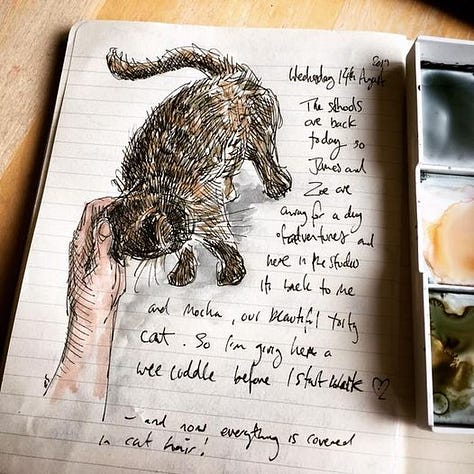 2019
Wednesday 14th August
The schools
are back
today so
James and
Zoe are
away for a day
of adventures and
here in the studio
its back to me
and mocha, our beautiful torty
cat. So I'm giving her a
wee cuddle before I start work
- and now everything is covered
in cat hair!